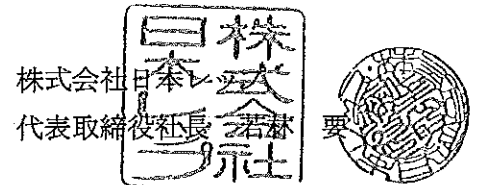 株式会社日本レップ
代表取締役社長 若林 要
株式会社
日本レップ